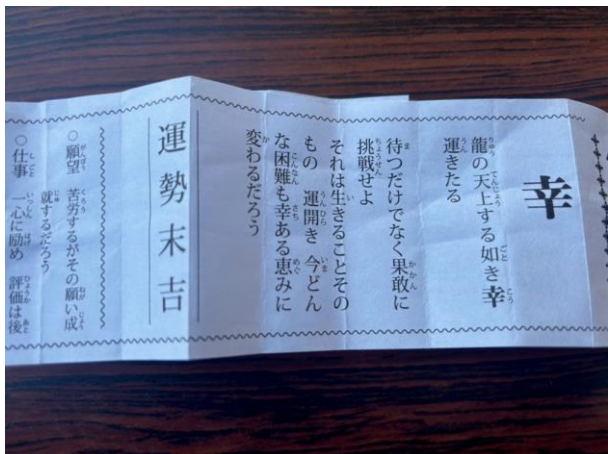 幸
龍の天上する如き幸
運きたる
待つだけでなく果敢に
挑戦せよ
それは生きることその
もの　運開き今どん
な困難も幸ある恵みに
変わるだろう
運勢末吉
○願望　苦労するがその願い成
就するだろう
○仕事　一心に励め　評価は後